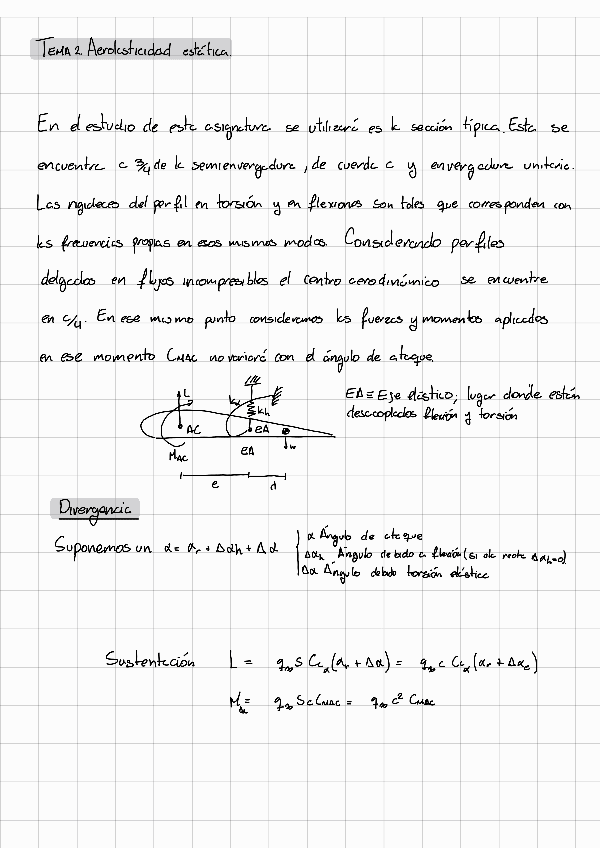 TEMA 2. Aerolesticidad estática.
En el estudio de esta asignatura se utilizará es la sección típica. Esta se
encuentra a 3/4 de la semienvergadura, de cuerda c y envergadura unitaria.
Las rigideces del perfil en torsión y en flexiones son tales que corresponden con
las frecuencias propias en esos mismos modos. Considerando perfiles
delgados en flujos incompresibles el centro aerodinámico se encuentre
en c/4. En ese mismo punto consideramos las fuerzas y momentos aplicados
en ese momento CMAC no variará con el ángulo de ataque.
EA ≡ Eje elástico; lugar donde están
desacoplados flexión y torsión
L
kα
kh
AC
EA
w
MAC
EA
e
d
Divergencia
Suponemos un α = αr + Δαh + Δα
α Ángulo de ataque
Δαh Ángulo debido a flexión (si ala recta Δαh=0)
Δα Ángulo debido torsión elástica
Sustentación L = q∞ S CLα (αr + Δα) = q∞ c CLα (αr + Δαe)
M = q∞ S c CMAC = q∞ c² CMAC